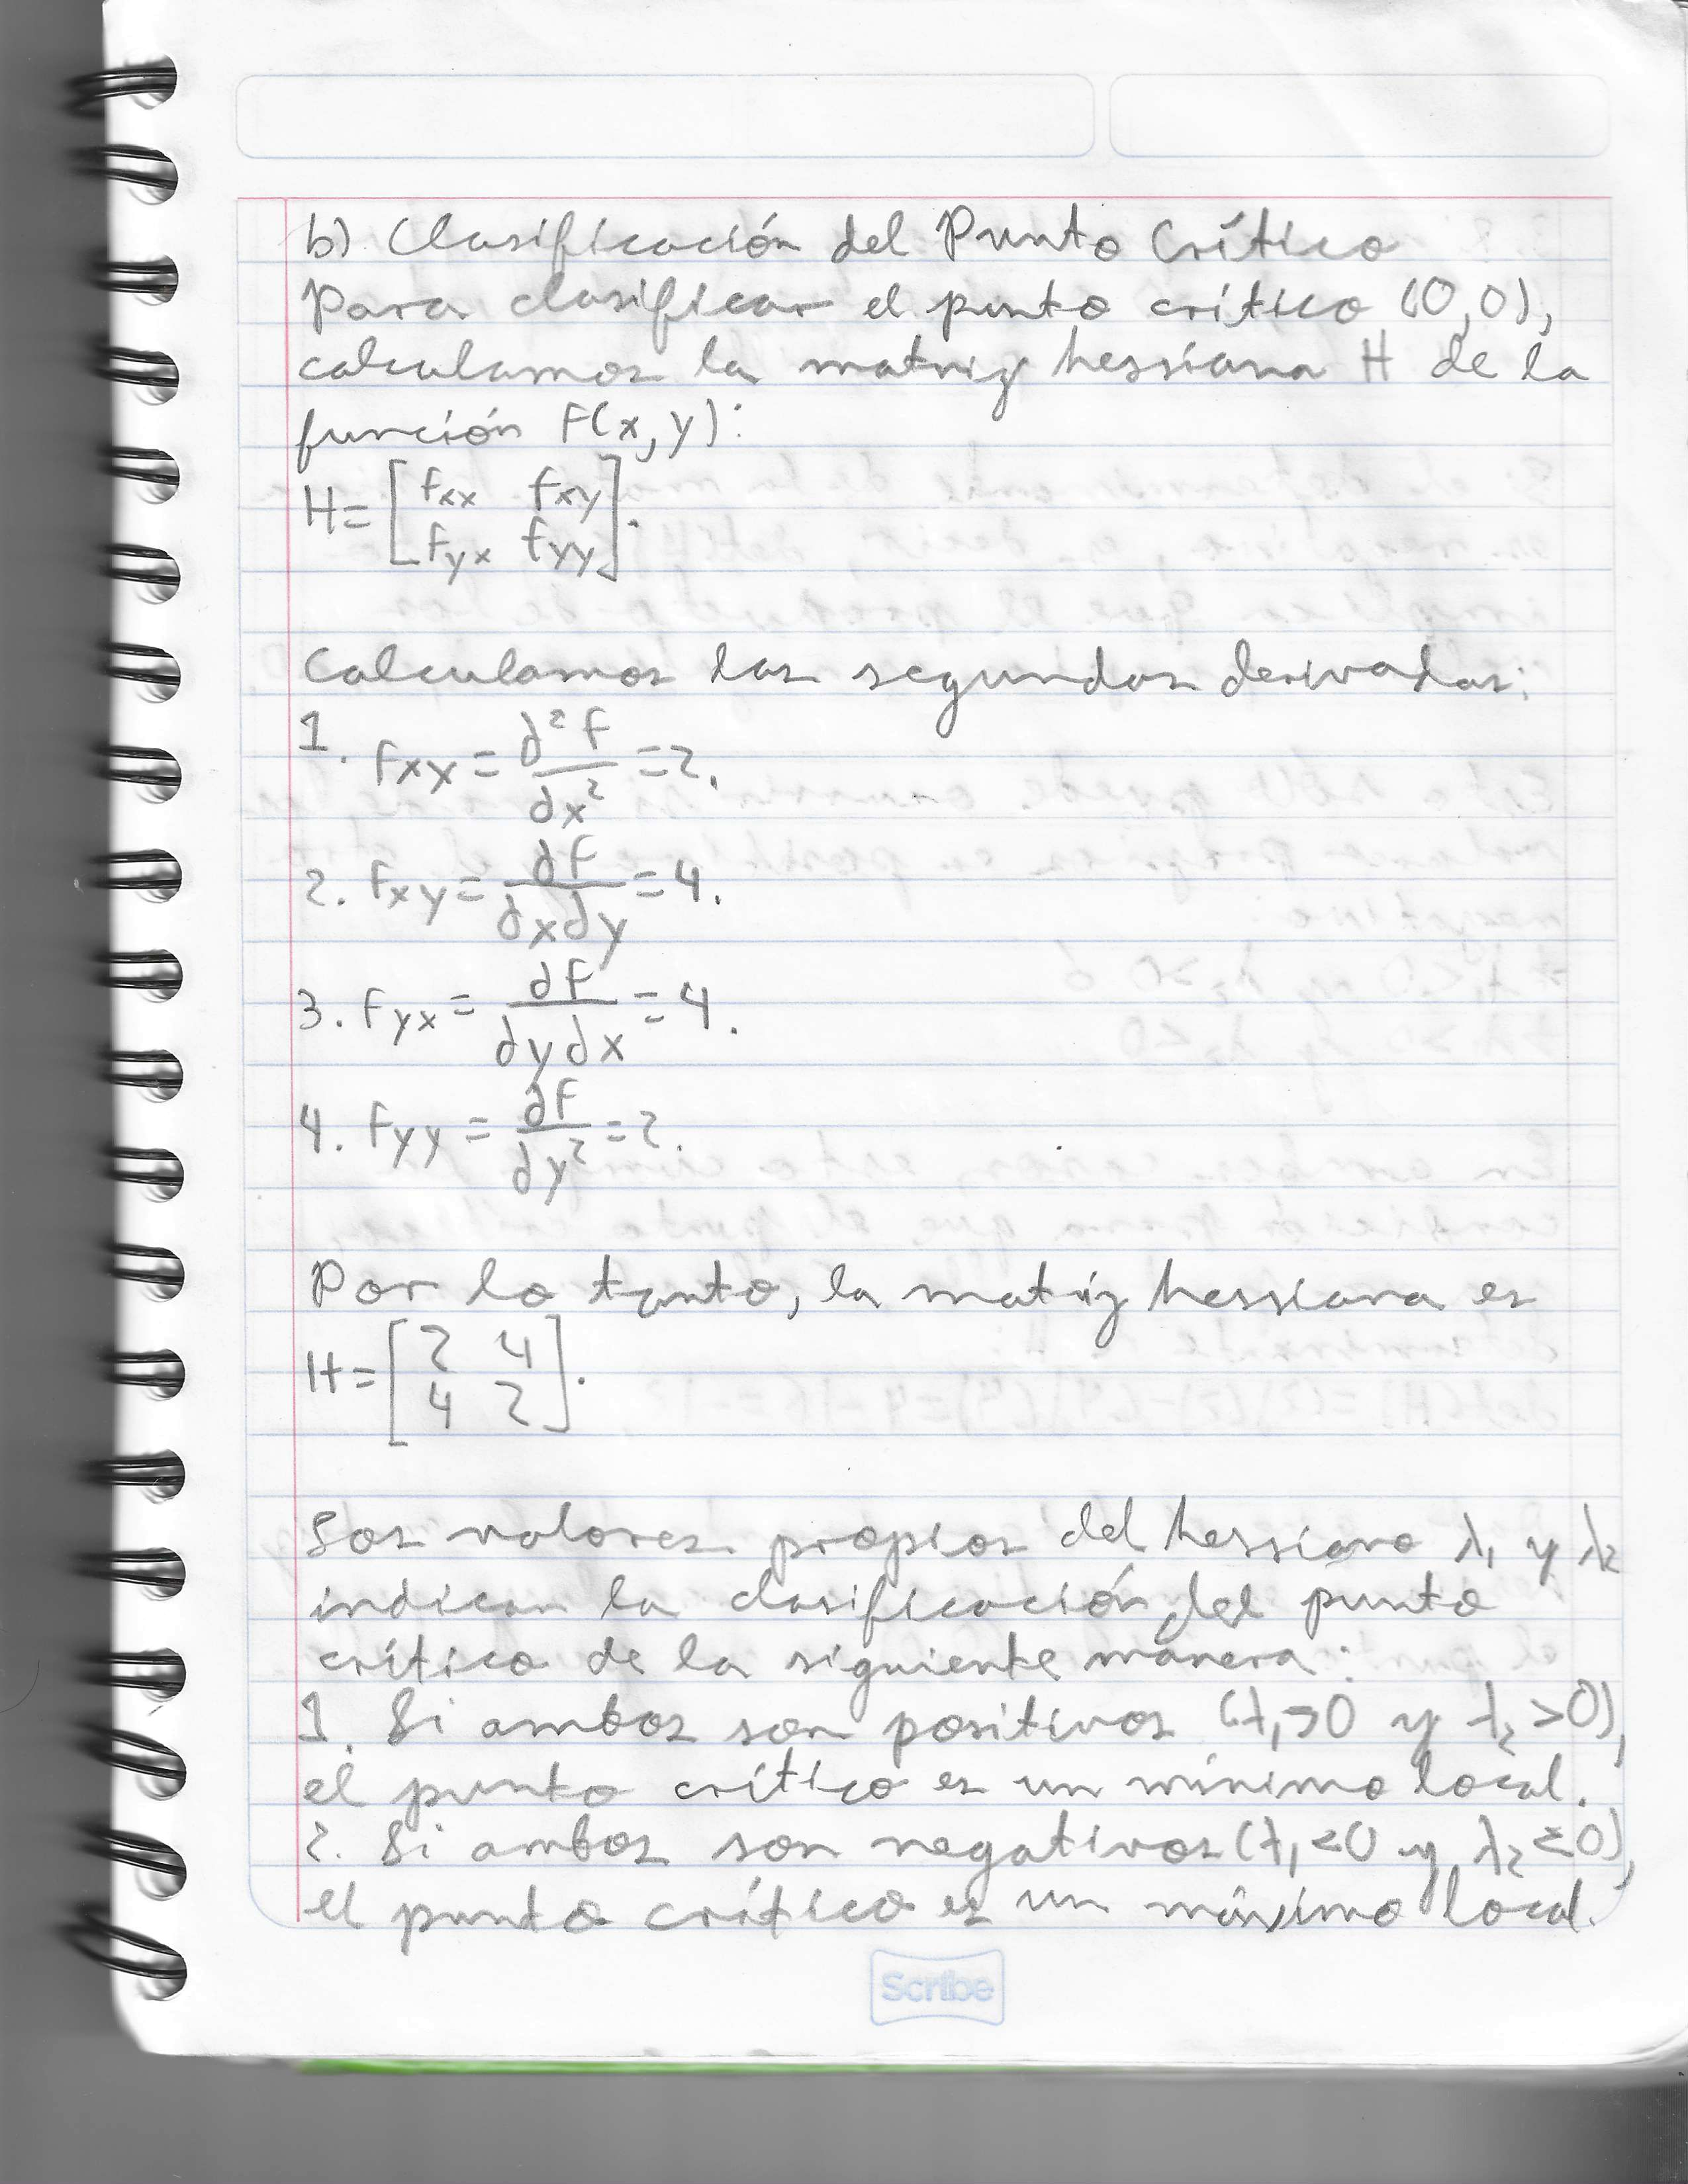 b) Clasificación del Punto Crítico
Para clasificar el punto crítico (0,0),
calculamos la matriz hessiana H de la
función F(x,y):
H=[fxx fxy
fyx fyy].
Calculamos las segundas derivadas:
1. fxx = ∂²f/∂x² = 2.
2. fxy = ∂f/∂x∂y = 4.
3. fyx = ∂f/∂y∂x = 4.
4. fyy = ∂f/∂y² = 2.
Por lo tanto, la matriz hessiana es
H=[2 4
4 2].
Los valores propios del hessiano λ₁ y λ₂
indican la clasificación del punto
crítico de la siguiente manera:
1. Si ambos son positivos (λ₁>0 y λ₂>0),
el punto crítico es un mínimo local.
2. Si ambos son negativos (λ₁<0 y λ₂<0),
el punto crítico es un máximo local.
Scribe